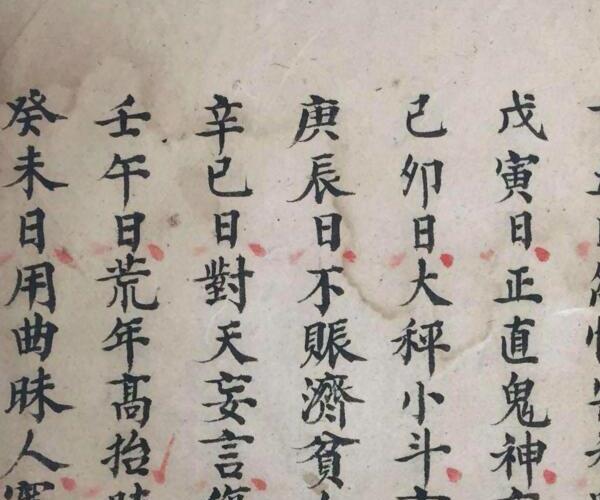 戊寅日正直鬼神
己卯日大秤小斗
庚辰日不賑濟貧
辛巳日對天妄言
壬午日荒年高抬
癸未日用曲昧人